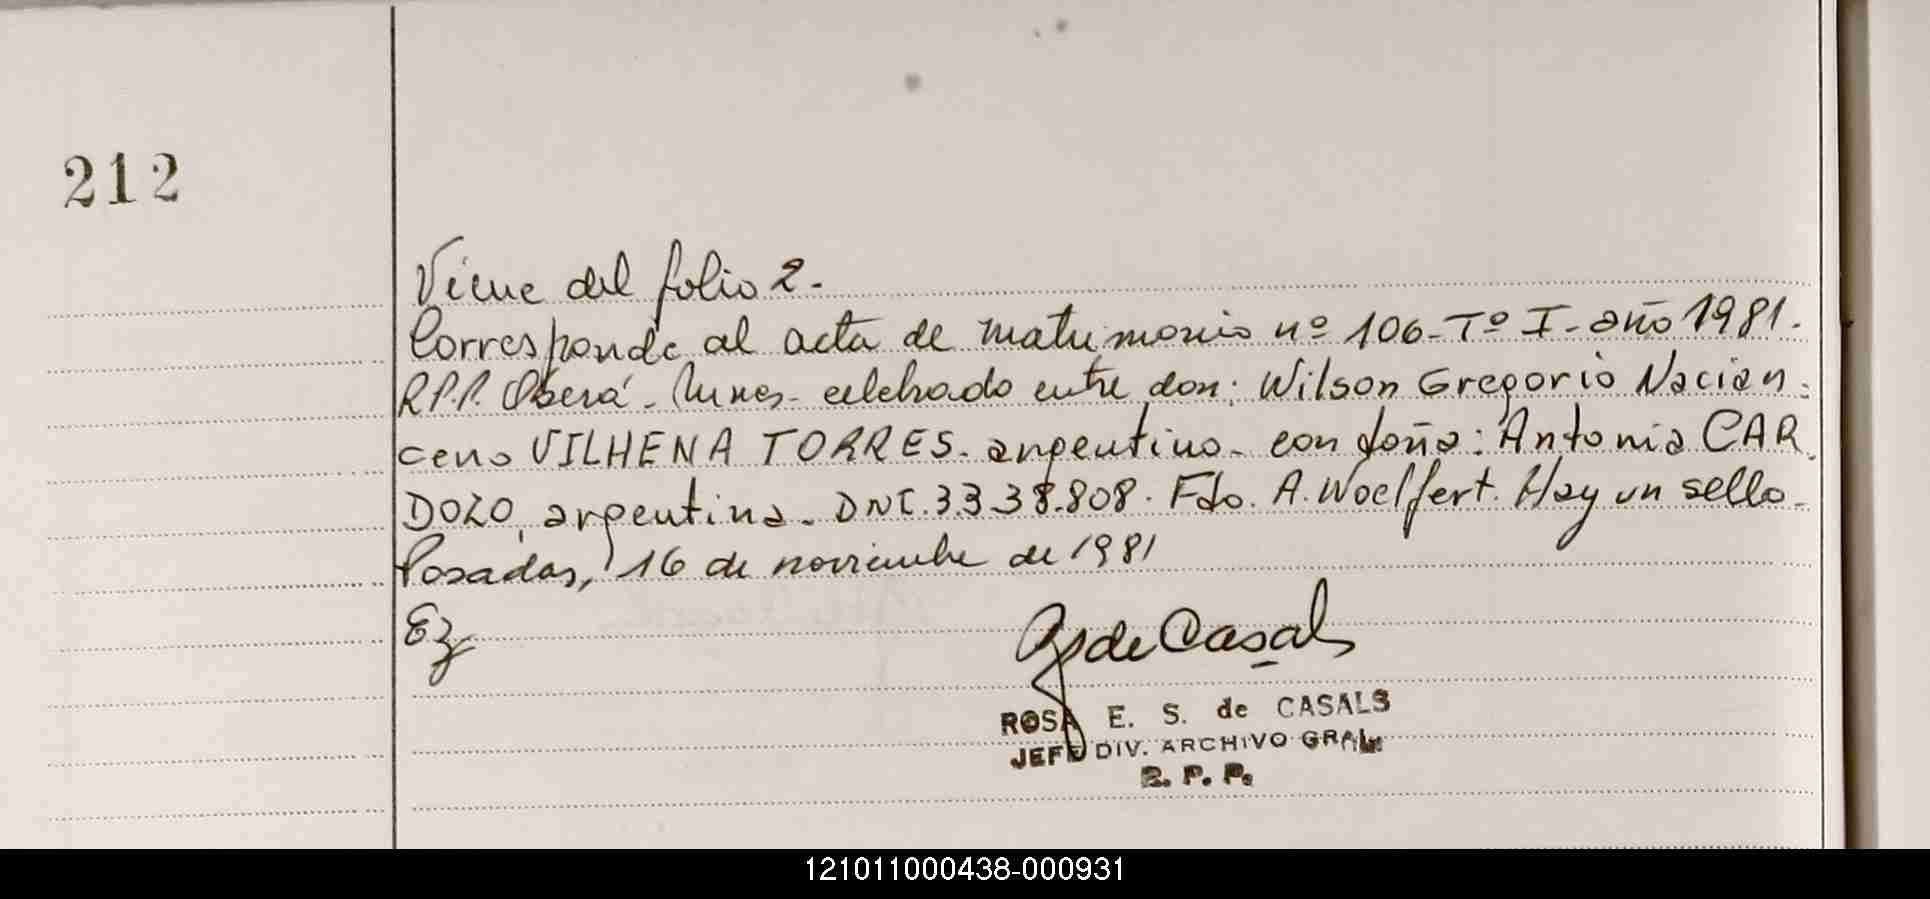 212
Viene del folio 2.
Corresponde al acta de matrimonio nº 106-Tº I-año 1981.
R.P.P. Oberá - Mnes. celebrado entre don: Wilson Gregorio Nacian-
ceno VILHENA TORRES. argentino - con doña: Antonia CAR
DOZO, argentina. DNI. 3.338.808. Fdo. A. Woelfert. Hay un sello.
Posadas, 16 de noviembre de 1981
de Casals
ROSA E. S. de CASALS
JEFE DIV. ARCHIVO GRAL.
R. P. P.
121011000438-000931